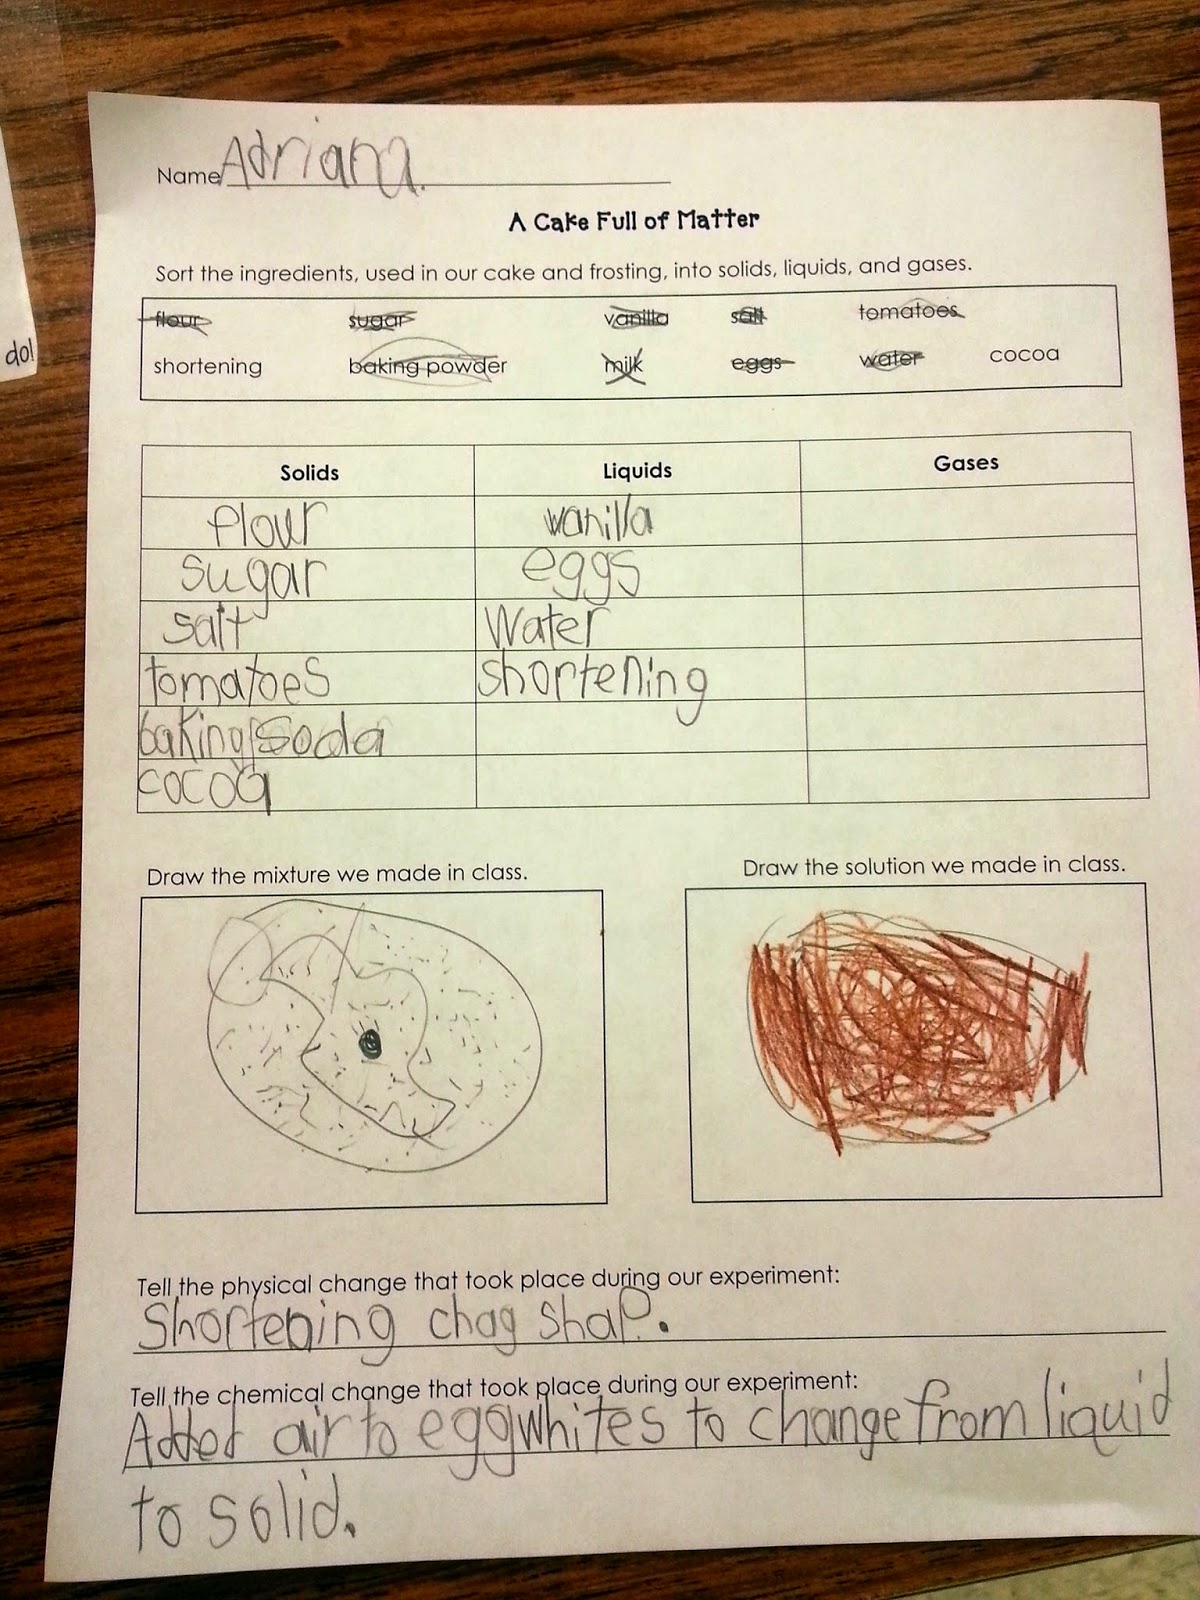 Name Adriana.
A Cake Full of Matter
Sort the ingredients, used in our cake and frosting, into solids, liquids, and gases.
flour sugar vanilla salt tomatoes
do!
shortening baking powder milk eggs water cocoa
Solids Liquids Gases
flour vanilla
sugar eggs
salt Water
tomatoes shortening
baking soda
cocoa
Draw the mixture we made in class. Draw the solution we made in class.
Tell the physical change that took place during our experiment:
Shortening chag shap.
Tell the chemical change that took place during our experiment:
Added air to eggwhites to change from liquid
to solid.